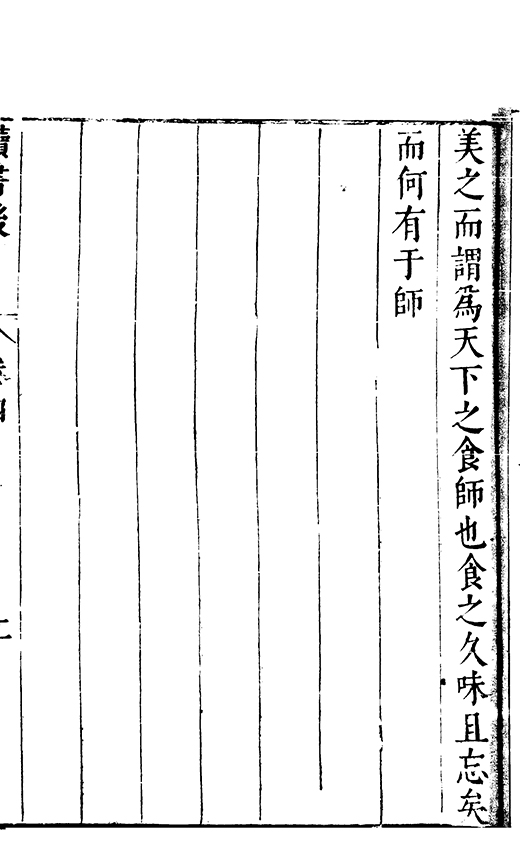 美之而謂爲天下之食師也食之久味且忘矣
而何有于師
讀書後
卷四